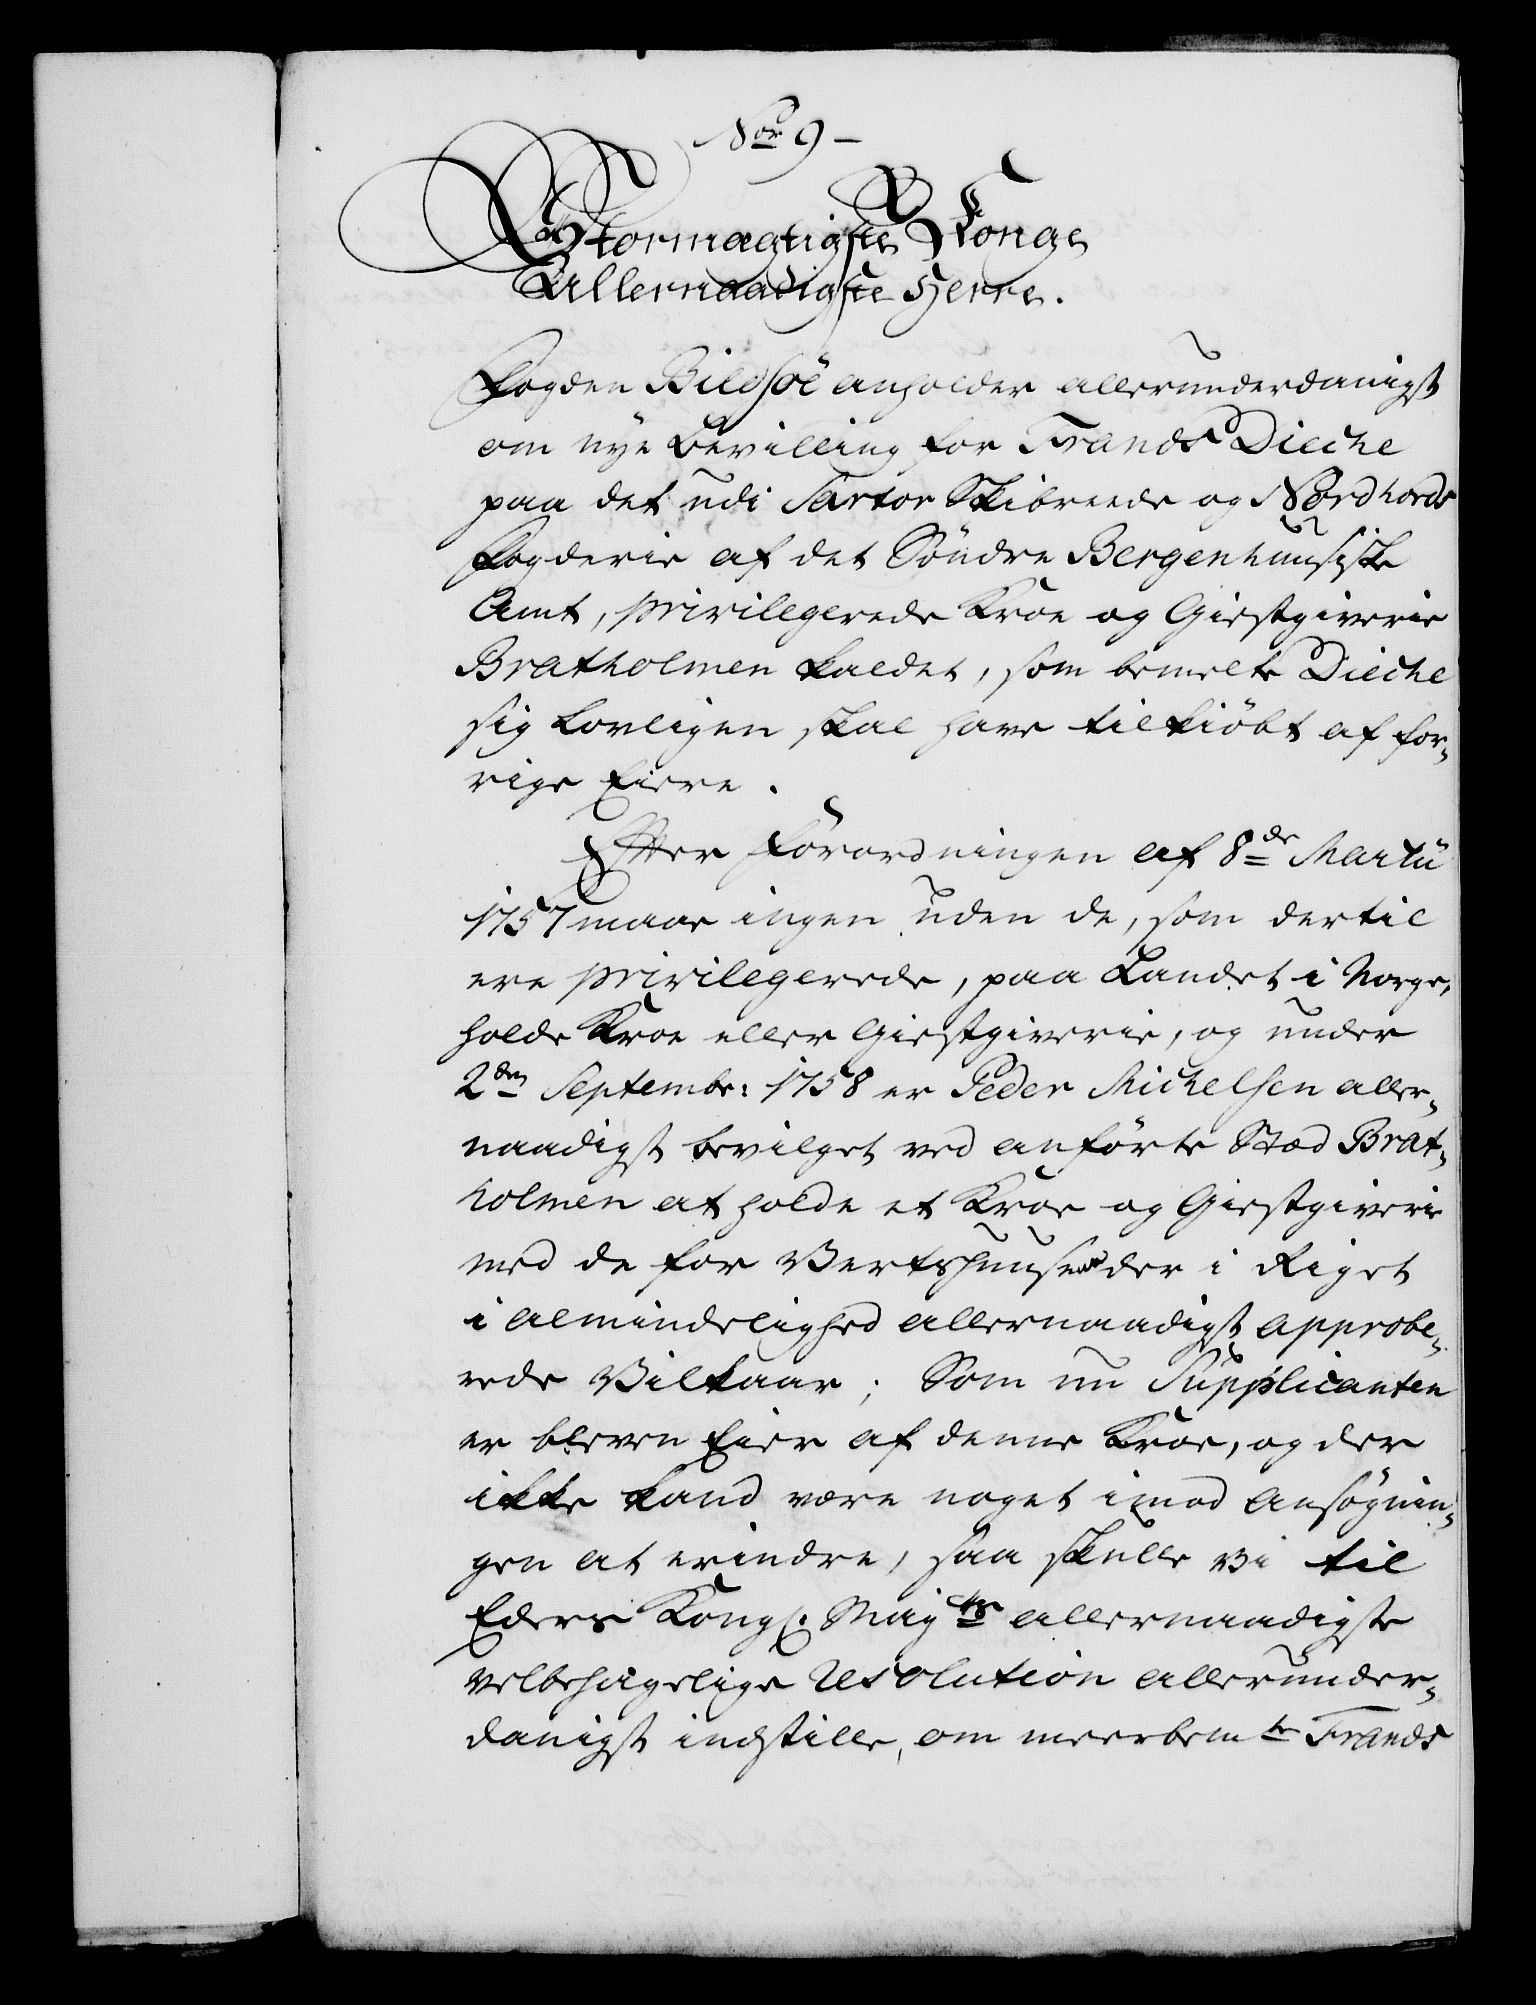 No 9 –
Stormægtigste Konge
Allernaadigste Herre.
Fogden Bildsöe anholder allerunderdanigst
om nye Bevilling for Frands Dieche
paa det udi Sartor Skibreede og Nordhords
Fogderie af det Söndre Bergenhuusiske
Amt, privilegerede Kroe og Giestgiverie
Bratholmen kaldet, som bemelte Dieche
sig lovligen skal have tilkiöbt af for-
rige Eiere.
Efter Forordningen af 8de Martii
1757 maae ingen uden de, som dertil
ere privilegerede, paa Landet i Norge,
holde Kroe eller Giestgiverie, og under
2den Septembr: 1758 er Peder Michelsen aller-
naadigst bevilget ved anförte Stæd Brat-
holmen at holde et Kroe og Giestgiverie
med de for Vertshuuse der i Riget
i almindelighed allernaadigst approbe-
rede Vilkaar; Som nu Supplicanten
er bleven Eier af denne Kroe, og der
ikke kand være noget imod Ansögnin-
gen at erindre, saa skulle vi til
Eders Kongl. Mayts allernaadigste
velbehagelige Resolution allerunder-
danigst indstille, om meerbemte Frands